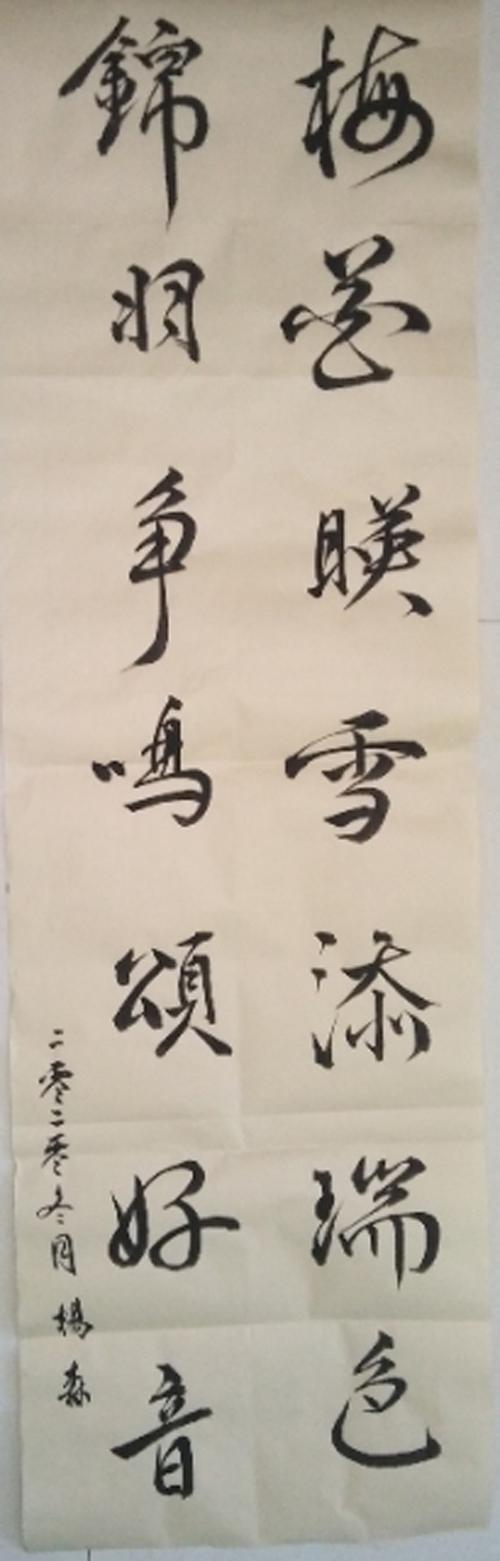 梅花暎雪添瑞色
錦羽争鳴頌好音
二零二零冬月 楊森